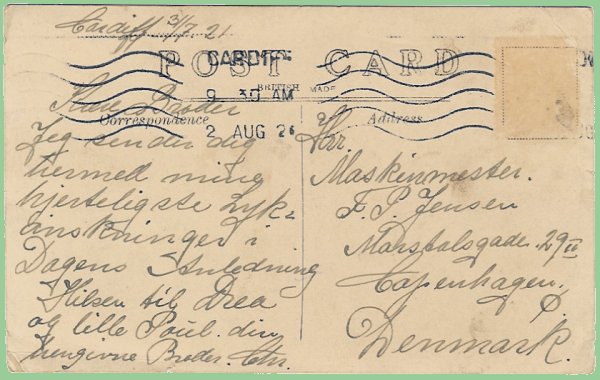 Cardiff 31/7. 21.
POST CARD
BRITISH MADE
CARDIFF
9 30 AM
2 AUG 21
Correspondence
Address
Kære Broder
Jeg sender dig
hermed mine
hjerteligste Lyk-
ønskninger i
Dagens Anledning
Hilsen til Drea
og lille Poul. din
hengivne Broder. Chr.
Hrr.
Maskinmester.
F. P. Jensen
Marstalsgade 29 II
Copenhagen,
Ø.
Denmark.